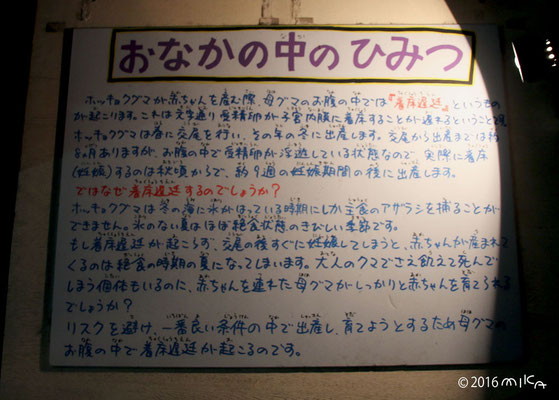 おなかの中のひみつ
ホッキョクグマが赤ちゃんを産む際、母グマのお腹の中では『着床遅延』というもの
が起こります。これは文字通り受精卵が子宮内膜に着床することが遅れるということで、
ホッキョクグマは春に交尾を行い、その年の冬に出産します。交尾から出産までは約
8ヵ月ありますが、お腹の中で受精卵が浮遊している状態なので、実際に着床
(妊娠)するのは秋頃からで、約9週の妊娠期間の後に出産します。
ではなぜ着床遅延するのでしょうか?
ホッキョクグマは冬の海に氷がはっている時期にしか主食のアザラシを捕ることが
できません。氷のない夏はほぼ絶食状態のきびしい季節です。
もし着床遅延が起こらず、交尾の後すぐに妊娠してしまうと、赤ちゃんが産まれて
くるのは絶食の時期の夏になってしまいます。大人のクマでさえ飢えて死んで
しまう個体もいるのに、赤ちゃんを連れた母グマがしっかりと赤ちゃんを育てられる
でしょうか?
リスクを避け、一番良い条件の中で出産し、育てようとするため母グマの
お腹の中で着床遅延が起こるのです。
©2016 MIKA